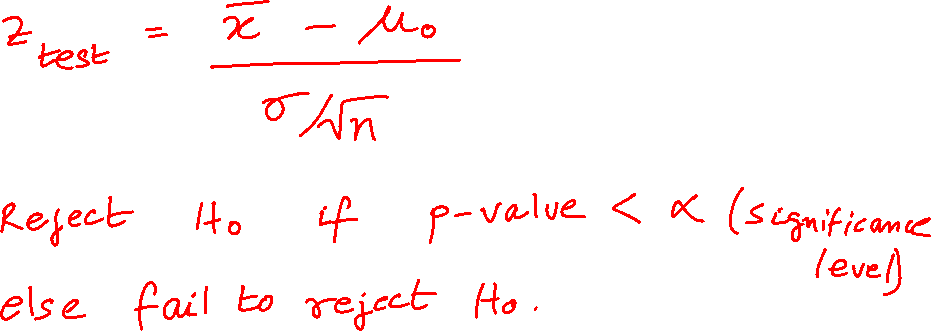 z_test = (x̄ - μ₀) / (σ/√n)
Reject H₀ if p-value < α (significance level)
else fail to reject H₀.